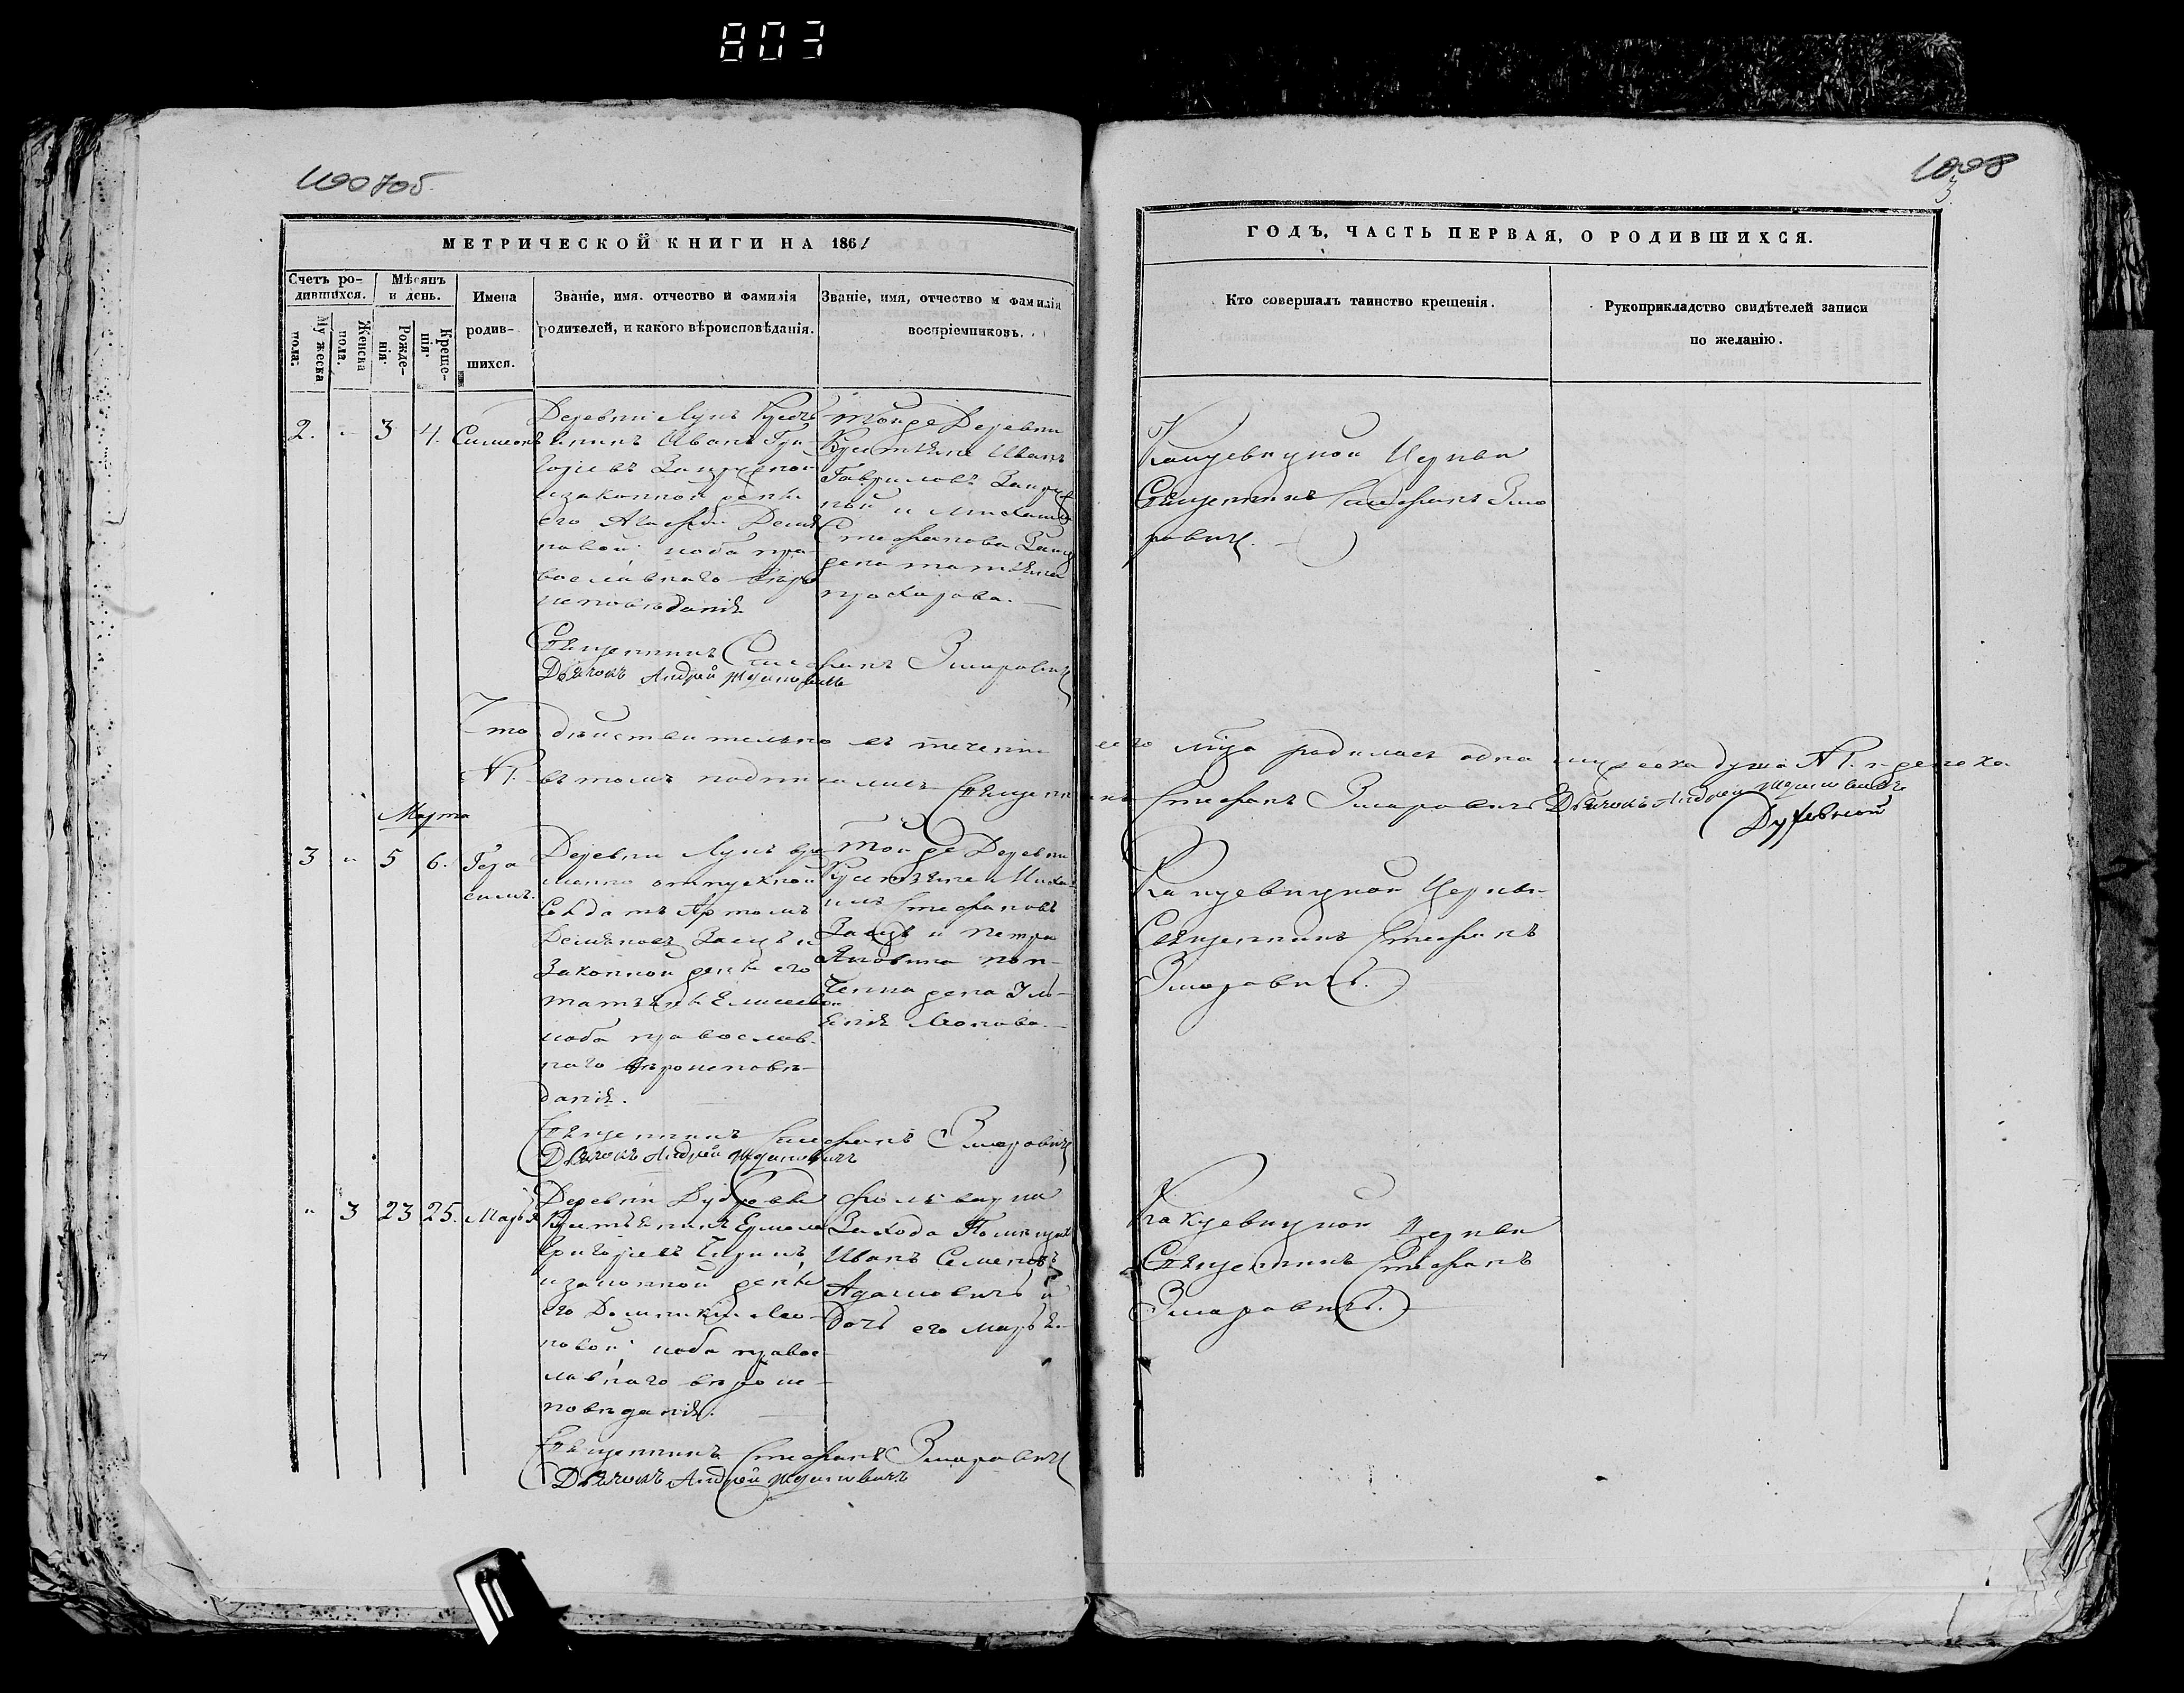 803
1190705
1008
3
МЕТРИЧЕСКОЙ КНИГИ НА 1861
ГОДЪ, ЧАСТЬ ПЕРВАЯ, О РОДИВШИХСЯ.
Счетъ ро-
дившихся.
Мужеска
пола.
Женска
пола.
Мѣсяцъ
и день.
Рожде-
нія.
Креще-
нія.
Имена
родив-
шихся.
Званіе, имя. отчество и фамилія
родителей, и какого вѣроисповѣданія.
Званіе, имя, отчество и фамилія
воспріемниковъ.
Кто совершалъ таинство крещенія.
Рукоприкладство свидѣтелей записи
по желанію.
2. 3 4. Симеонъ
Деревни Лунъ Кресть
янинъ Иванъ Гри-
горьевъ
и законной жены
его Агафьи Демья
новой оба пра-
вославнаго вѣро
исповѣданія
Тойже Деревни
Крестьяне Иванъ
Гавриловъ
и
Стефанова
жена татьяна
прохорова.
Церкви
Священникъ Стефанъ Зма
ровичъ.
Священникъ Стефанъ Змаровичъ
Дьячокъ Андрей
Что дѣйствительно въ теченіи сего мца родилась одна мужеска душа №1. и женска
№1. въ томъ подписались Священникъ Стефанъ Змаровичъ Дьячокъ Андрей
Духовной
Марта
3 " 5 6. Гера
симъ.
Деревни Лунъ вре
менно отпускной
Солдатъ Артомъ
Демьяновъ Заецъ и
Законной жены его
татьяны Елисеевой
оба православ-
наго вѣроисповѣ-
данія.
Тойже Деревни
Крестьяне Миха-
илъ Стефановъ
Заецъ и петра
жена Уль-
янія Леонова.
Церкви
Священникъ Стефанъ
Змаровичъ.
Священникъ Стефанъ Змаровичъ
Дьячокъ Андрей
" 3 23 25. Марья
Деревни Дубровы
Крестьянинъ Ермола
Григорьевъ
и законной жены
его Домникіи Лео-
новой оба правос
лавнаго вѣроис-
повѣданія.
фольварка
Захода Помѣщикъ
Иванъ Семеновъ
Адамовичъ и
Дочь его Марья.
Церкви
Священникъ Стефанъ
Змаровичъ.
Священникъ Стефанъ Змаровичъ
Дьячокъ Андрей